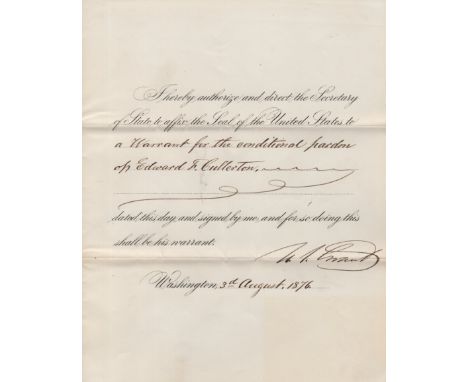 I hereby authorize and direct the Secretary
of State to affix the Seal of the United States to
a Warrant for the conditional pardon
of Edward F. Cullerton,
dated this day, and signed by me, and for so doing this
shall be his warrant.
U. S. Grant
Washington, 3rd August, 1876